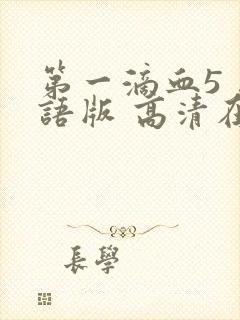 第一滴血5
語版 高清在
長學